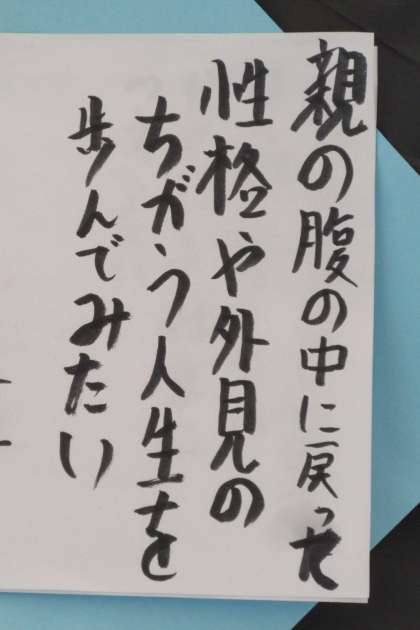 親の腹の中に戻った
性格や外見の
ちがう人生を
歩んでみたい